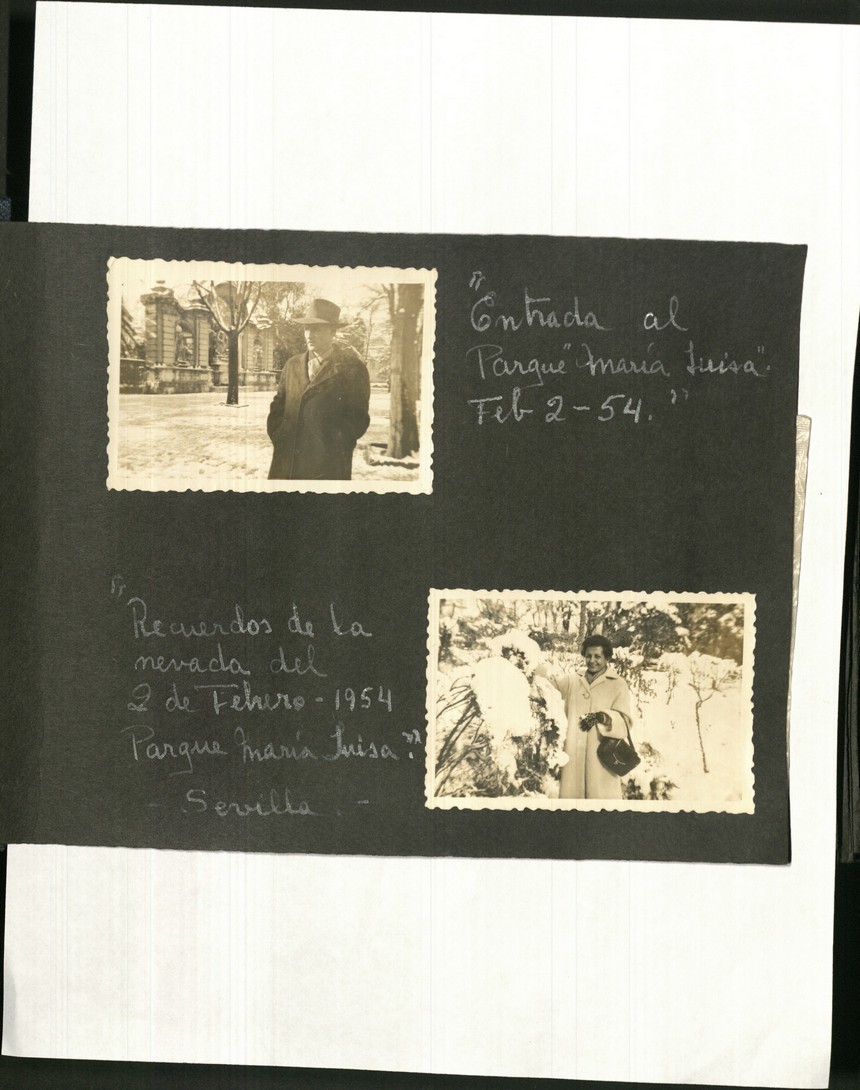 "Entrada al
Parque "María Luisa".
Feb 2-54."
"Recuerdos de la
nevada del
2 de Febrero - 1954
Parque María Luisa."
- Sevilla. -